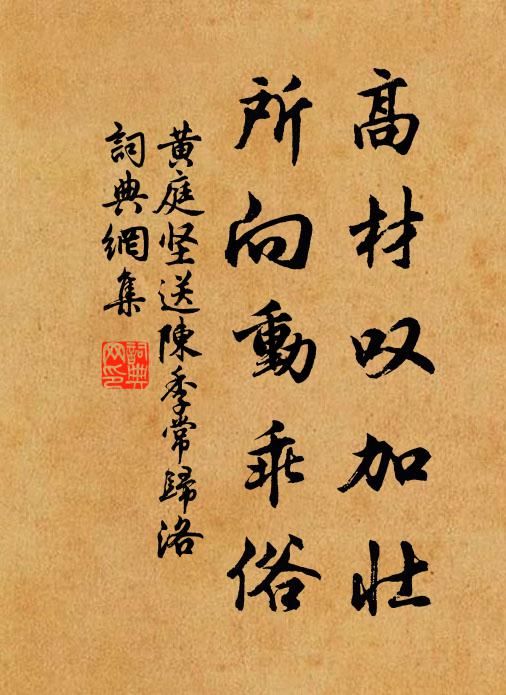 高材叹加壮
所向動乖俗
黄庭坚送陳季常歸洛
詞典網集
詞典
网印